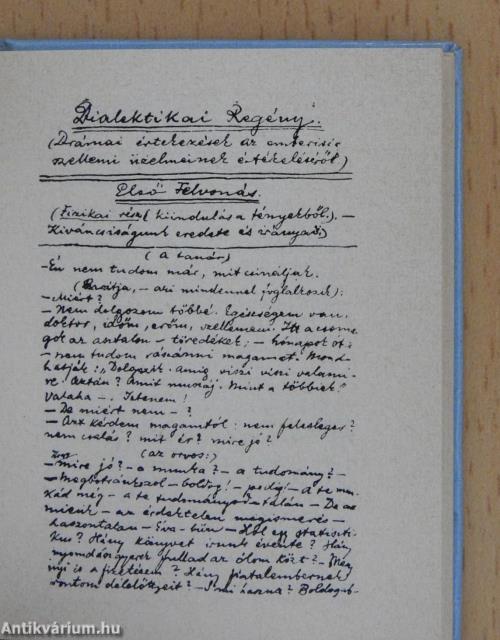 Dialektikai Regény.
(Drámai értekezések az emberiség
szellemi üzelmeinek értékeléséről)
Első Felvonás.
(Fizikai rész / kiindulás a tényekből.) —
Kiváncsiságunk eredete és irányai.)
(a tanár)
- Én nem tudom már, mit csináljak.
(Barátja, — aki mindennel foglalkozik):
- Miért?
- Nem dolgozom többé. Egészségem van,
doktor, időm, erőm, szellemem. Itt a csomó
az asztalon - töredékek; - hónapok óta
- nem tudom rászánni magamat. Mond-
hatják: "Dolgozz. Amíg viszi viszi valami-
re. Aztán? Amit muszáj. Mint a többiek?
Valaha - . Istenem!
- De miért nem - ?
- Azt kérdem magamtól: nem felesleges?
nem csalás? mit ér? mire jó?
(az orvos:)
- mire jó? - a munka? - a tudomány? -
- Megbotránkozol - boldog! - pedig - a te mun-
kád még - a te tudományod - talán - De az
mienk - az érdektelen megismerés -
haszontalan - Hol egy statiszti-
kus? Hány könyvet irunk évente? Hány
nyomdászgyerek fullad az ólom közt? - Meny-
nyi is a fizetésem? Hány fiatalembernek
rontom délelőttjeit? S mi haszna? Boldogab-
Antikvárium.hu